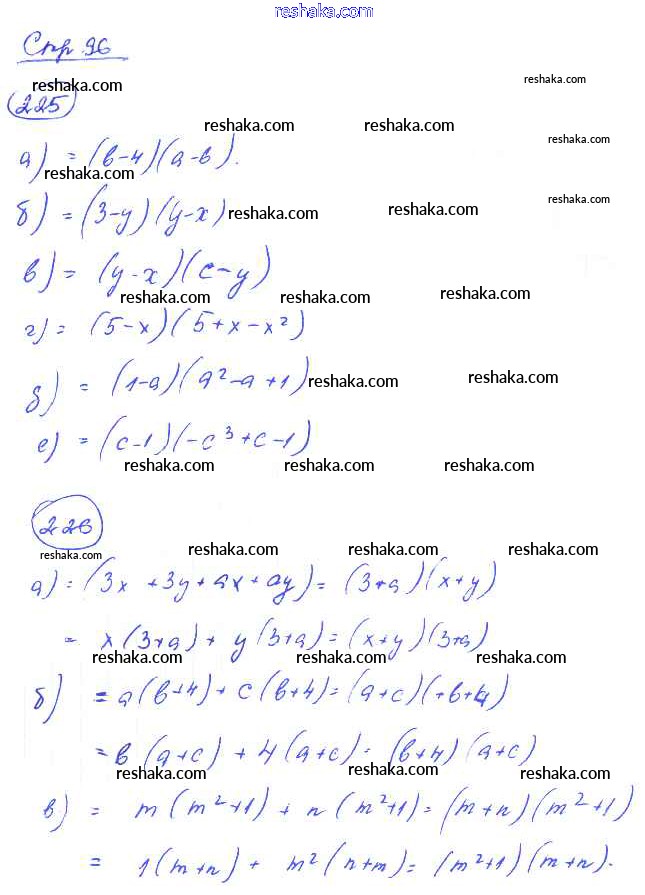 reshaka.com
Стр 96
reshaka.com reshaka.com
225
reshaka.com reshaka.com reshaka.com
а) = (b-4)(a-b).
reshaka.com
б) = (3-y)(y-x) reshaka.com reshaka.com reshaka.com
в) = (y-x)(c-y)
reshaka.com reshaka.com reshaka.com
г) = (5-x)(5+x-x²)
д) = (1-a)(a²-a+1) reshaka.com reshaka.com
е) = (c-1)(-c³+c-1)
reshaka.com reshaka.com reshaka.com
226
reshaka.com reshaka.com reshaka.com reshaka.com
а) = (3x+3y+ax+ay) = (3+a)(x+y)
= x(3+a) + y(3+a) = (x+y)(3+a)
reshaka.com reshaka.com reshaka.com
б) = a(b+4) + c(b+4) = (a+c)(+b+4)
= b(a+c) + 4(a+c) = (b+4)(a+c)
reshaka.com reshaka.com reshaka.com
в) = m(m²+1) + n(m²+1) = (m+n)(m²+1)
= 1(m+n) + m²(n+m) = (m²+1)(m+n).
reshaka.com reshaka.com reshaka.com